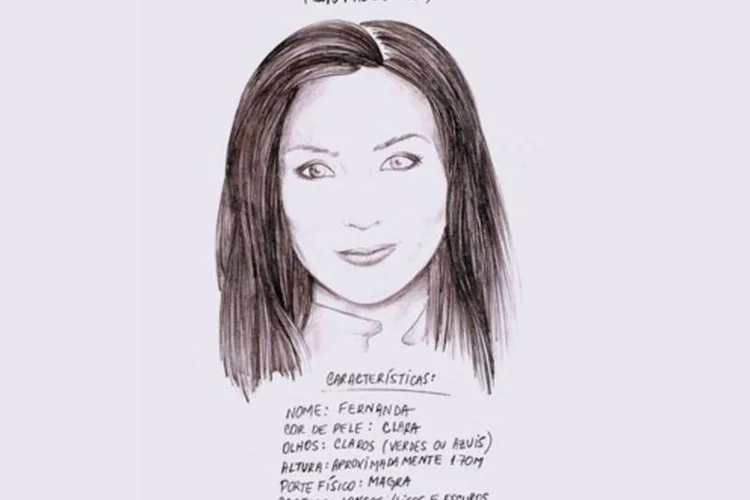 CARACTERÍSTICAS:
NOME: FERNANDA
COR DE PELE: CLARA
OLHOS: CLAROS (VERDES OU AZUIS)
ALTURA: APROXIMADAMENTE 1.70M
PORTE FÍSICO: MAGRA
LISOS E ESCUROS